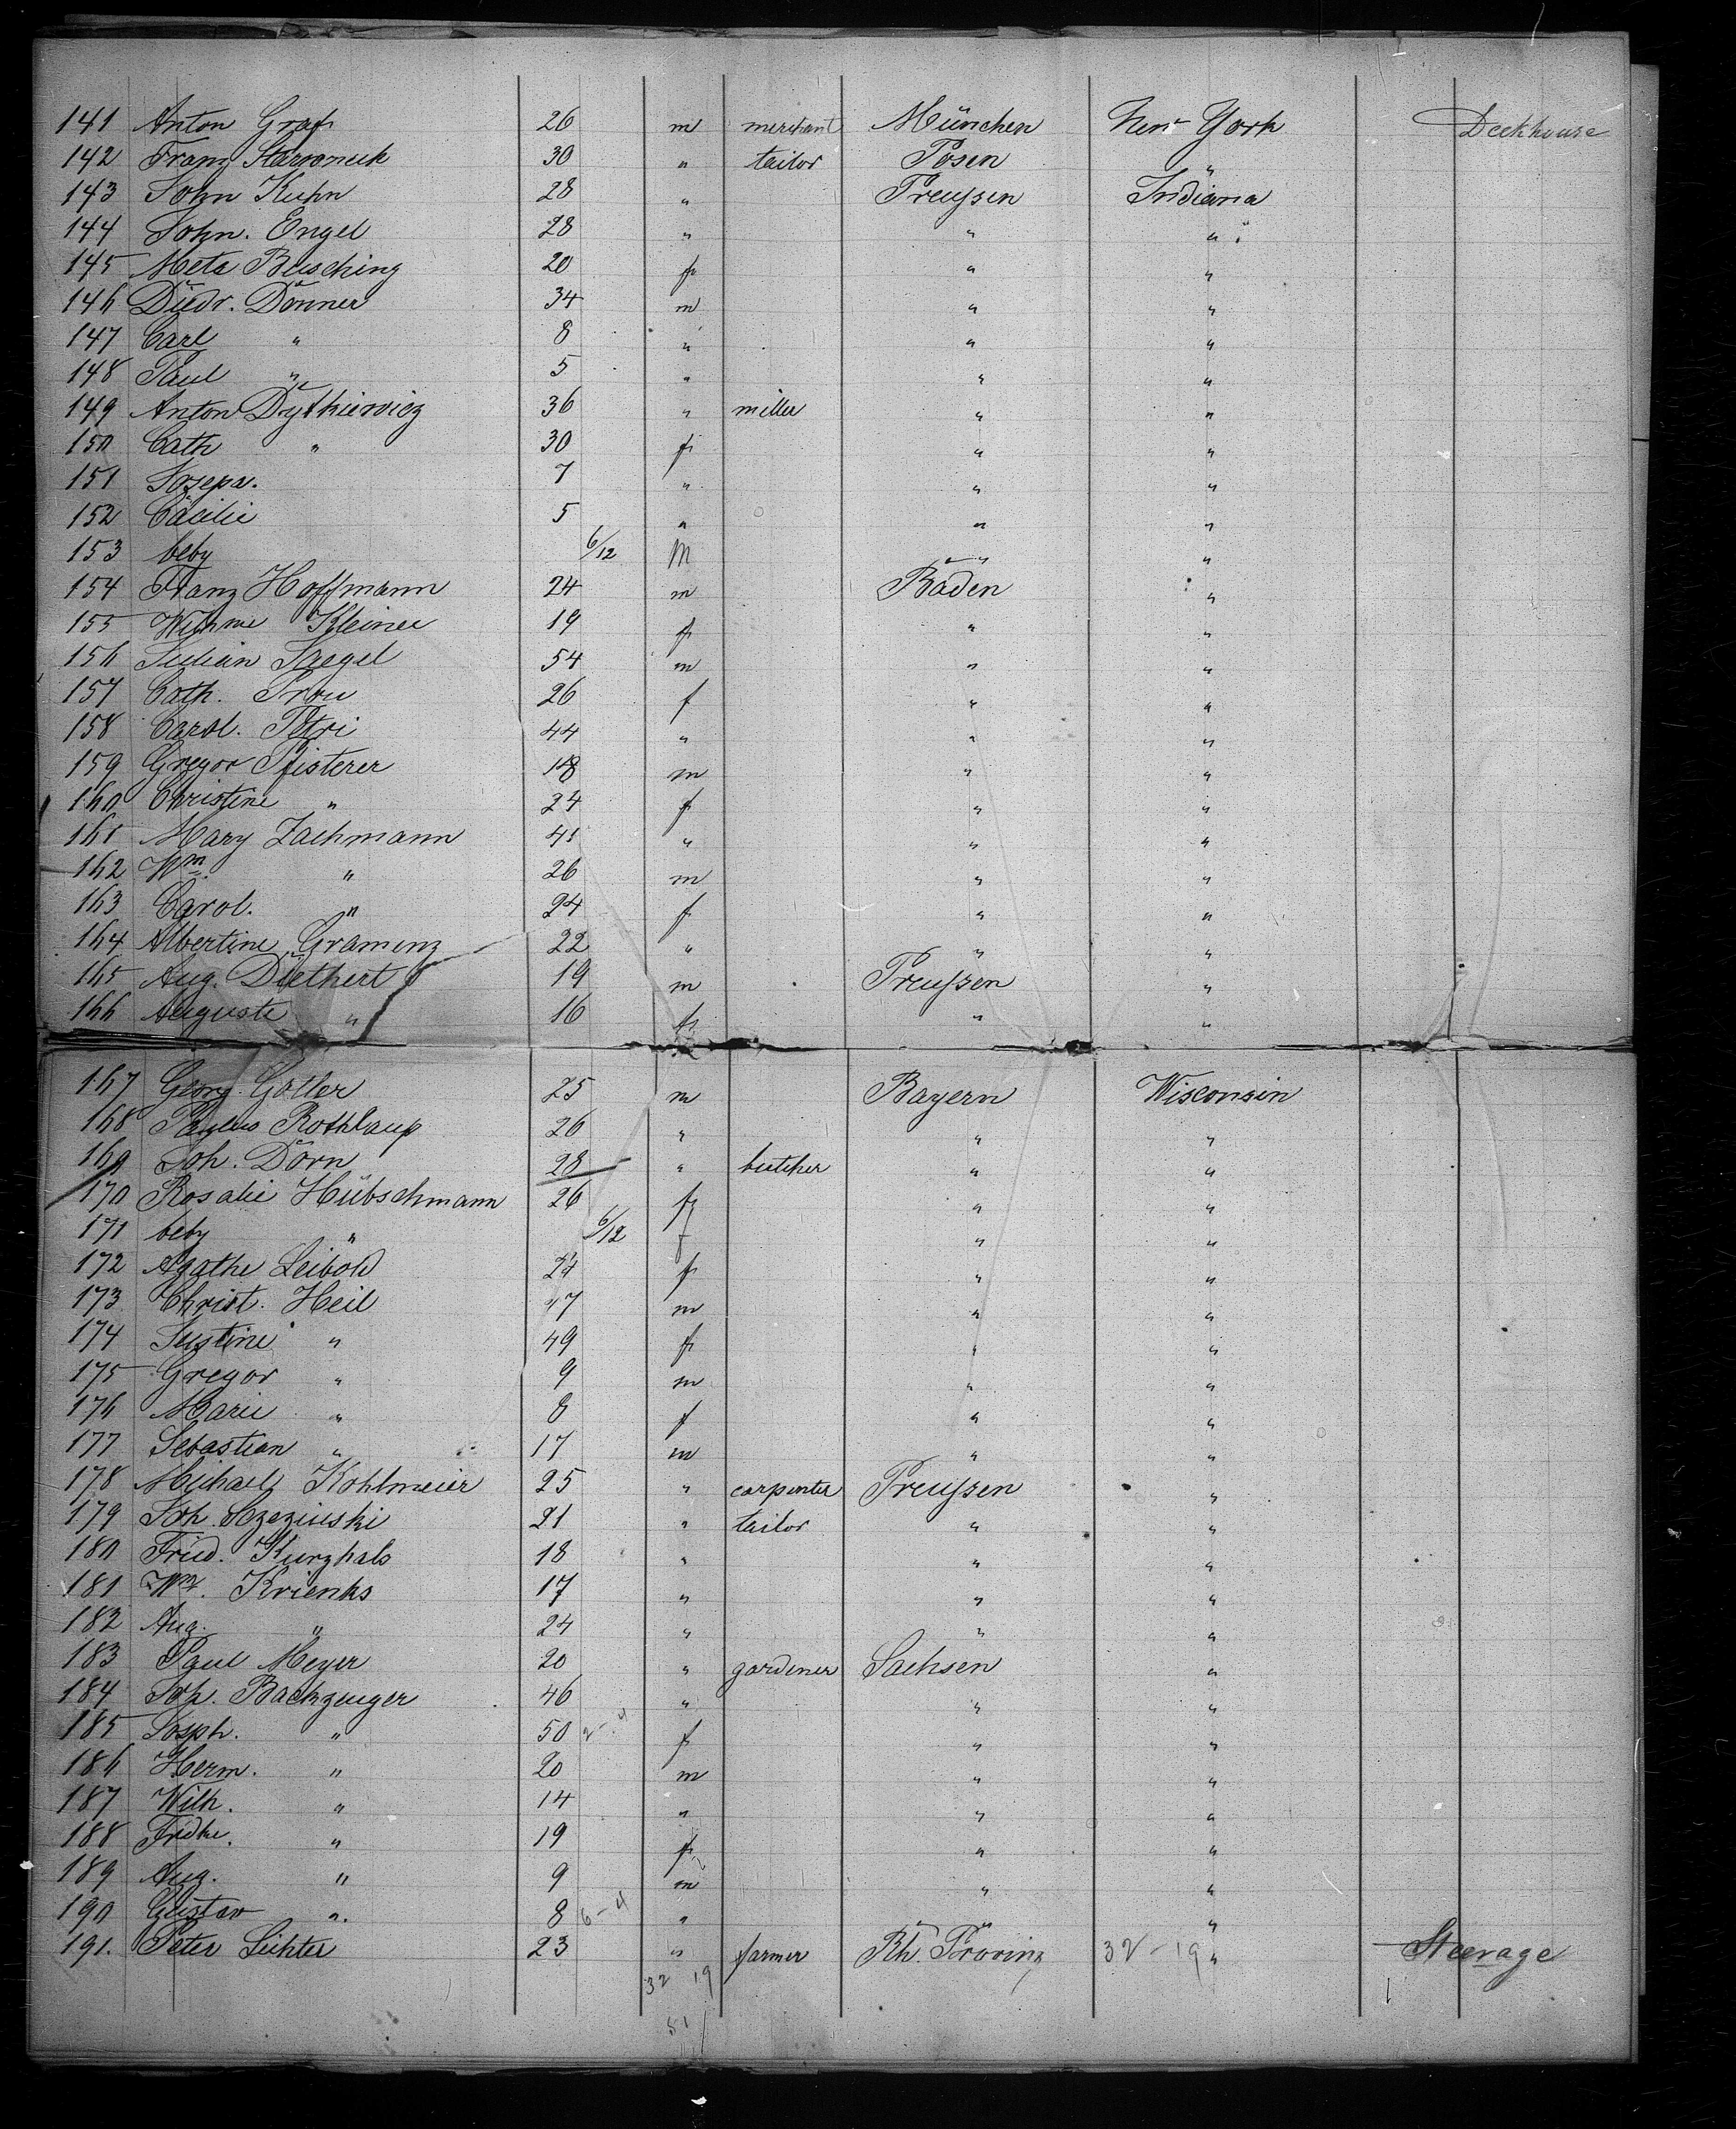 141 Anton Graf 26 m merchant München New York Deckhouse
142 Franz 30 " tailor Posen "
143 John Kuhn 28 " Preußen Indiana
144 John. Engel 28 " " "
145 Meta Busching 20 f " "
146 Diedr. Donner 34 m " "
147 Carl " 8 " " "
148 Paul " 5 " " "
149 Anton 36 " miller " "
150 Cath " 30 f " "
151 Josepa. 7 " " "
152 Cäcilie 5 " " "
153 beby 6/12 M " "
154 Franz Hoffmann 24 m Baden "
155 Kleiner 19 f " "
156 Julian Jaegel 54 m " "
157 Cath. 26 f " "
158 Carol. Petri 44 " " "
159 Gregor Pfisterer 18 m " "
160 Christine " 24 f " "
161 Mary Zachmann 41 " " "
162 Wm. " 26 m " "
163 Carol. " 24 f " "
164 Albertine Gramenz 22 " " "
165 Aug. Diethert 19 m Preußen "
166 Auguste " 16 f " "
167 Georg Götler 25 m Bayern Wisconsin
168 Paulus Rothlaup 26 " " "
169 Joh. Dorn 28 " butcher " "
170 Rosalie Hübschmann 26 f " "
171 beby " 6/12 f " "
172 Agathe Leibold 24 f " "
173 Christ. Heil 47 m " "
174 Justine " 49 f " "
175 Gregor " 9 m " "
176 Marie " 8 f " "
177 Sebastian " 17 m " "
178 Michael Kohlmeier 25 " carpenter Preußen "
179 Joh. 21 " tailor " "
180 Fried. Kurzhals 18 " " "
181 Wm. Krienks 17 " " "
182 Aug. " 24 " " "
183 Paul Meyer 20 " gardener Sachsen "
184 Joh. Bachzuger 46 " " "
185 Josph. " 50 2-4 f " "
186 Herm. " 20 m " "
187 Wilh. " 14 " " "
188 Fridke. " 19 f " "
189 Aug. " 9 m " "
190 Gustav " 8 6-4 " " "
191. Peter Lichter 23 " farmer Rh. Provinz 32-19 " Steerage
32 19
51